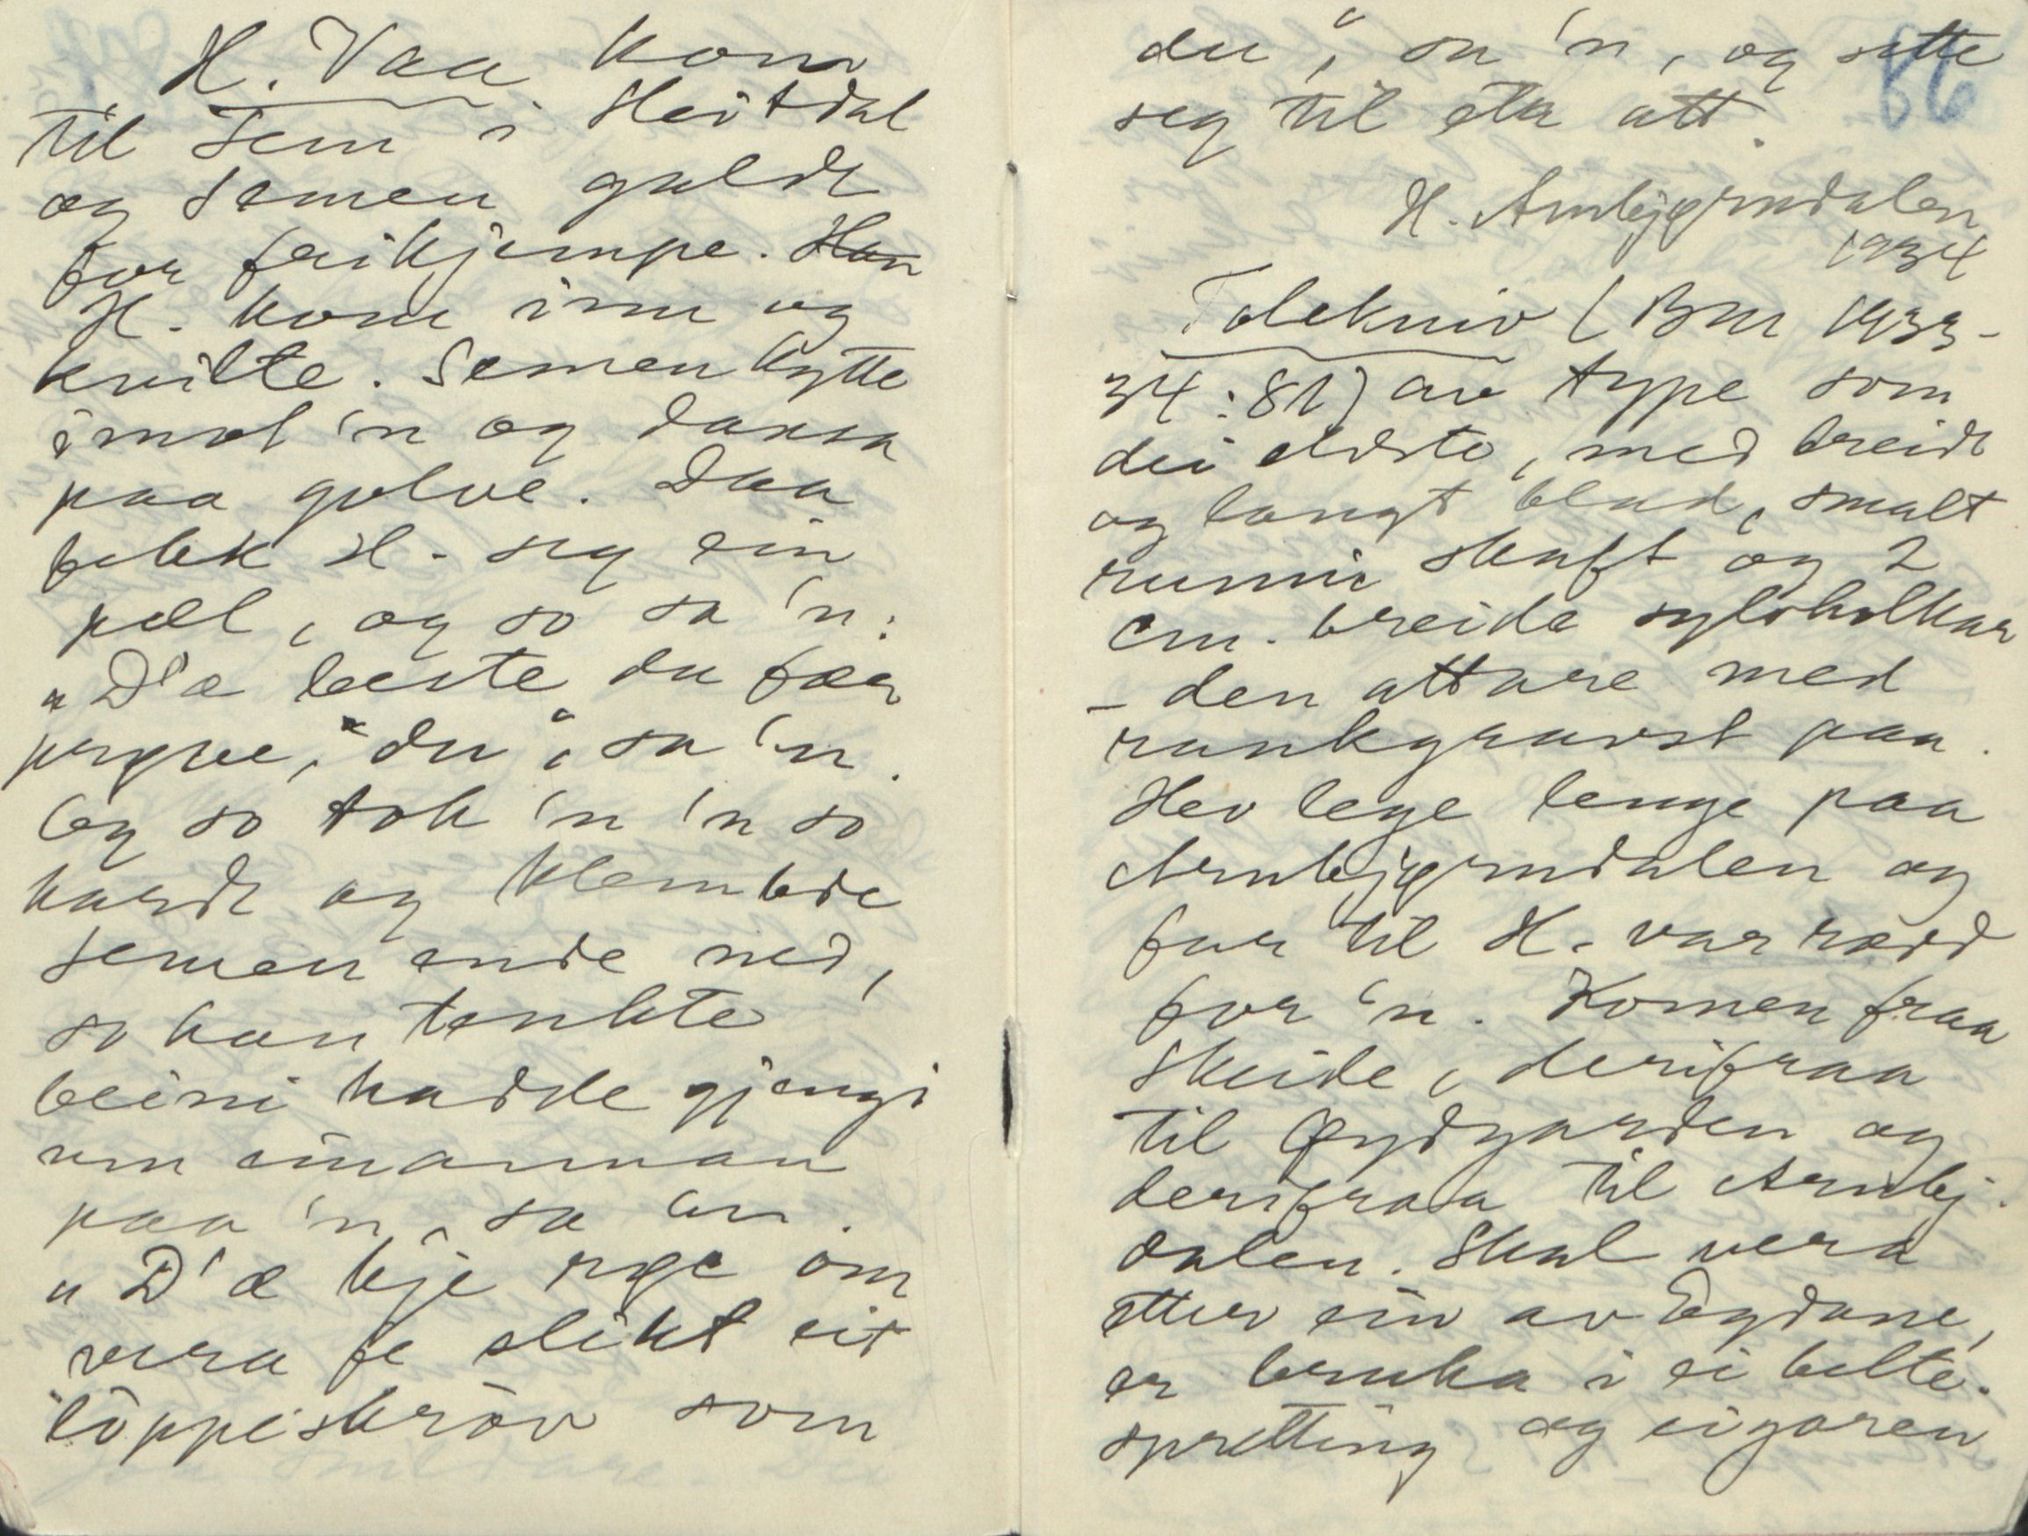 H. Vaa kom
til Sem i Heitdal
og Semen galdt
for frikjempe. Han
H. kom inn og
kvilte. Semen hytte
imot 'n og dansa
paa golve. Daa
fekk H. seg ein
pæl, og so sa 'n:
"D'æ beste du fær
prøve, du", sa 'n.
Og so tok 'n 'n so
hardt og klembde
Semen ende ned,
so han tenkte
beini hadde gjengi
um einannan
paa 'n, sa 'n.
"D'æ kje rge om
vera fe slikt eit
löppeskrov som
du", sa 'n, og sette
seg til eta att.
H. Arnbjørndalen
1934
86
Tolekniv (BM 1933-
34:81) av type som
dei eldste, med breidt
og langt blad, smalt
runni skaft og 2
cm. breide sylvholkar
- den attare med
rankgravst paa.
Hev lege lenge paa
Arnbjørndalen og
far til H. var rædd
for 'n. Komen fraa
Skeide, derifraa
til Øydgarden og
derifraa til Arnbj.
dalen. Skal vera
etter ein av Egdane,
er bruka i ei belte-
spretting og eigaren